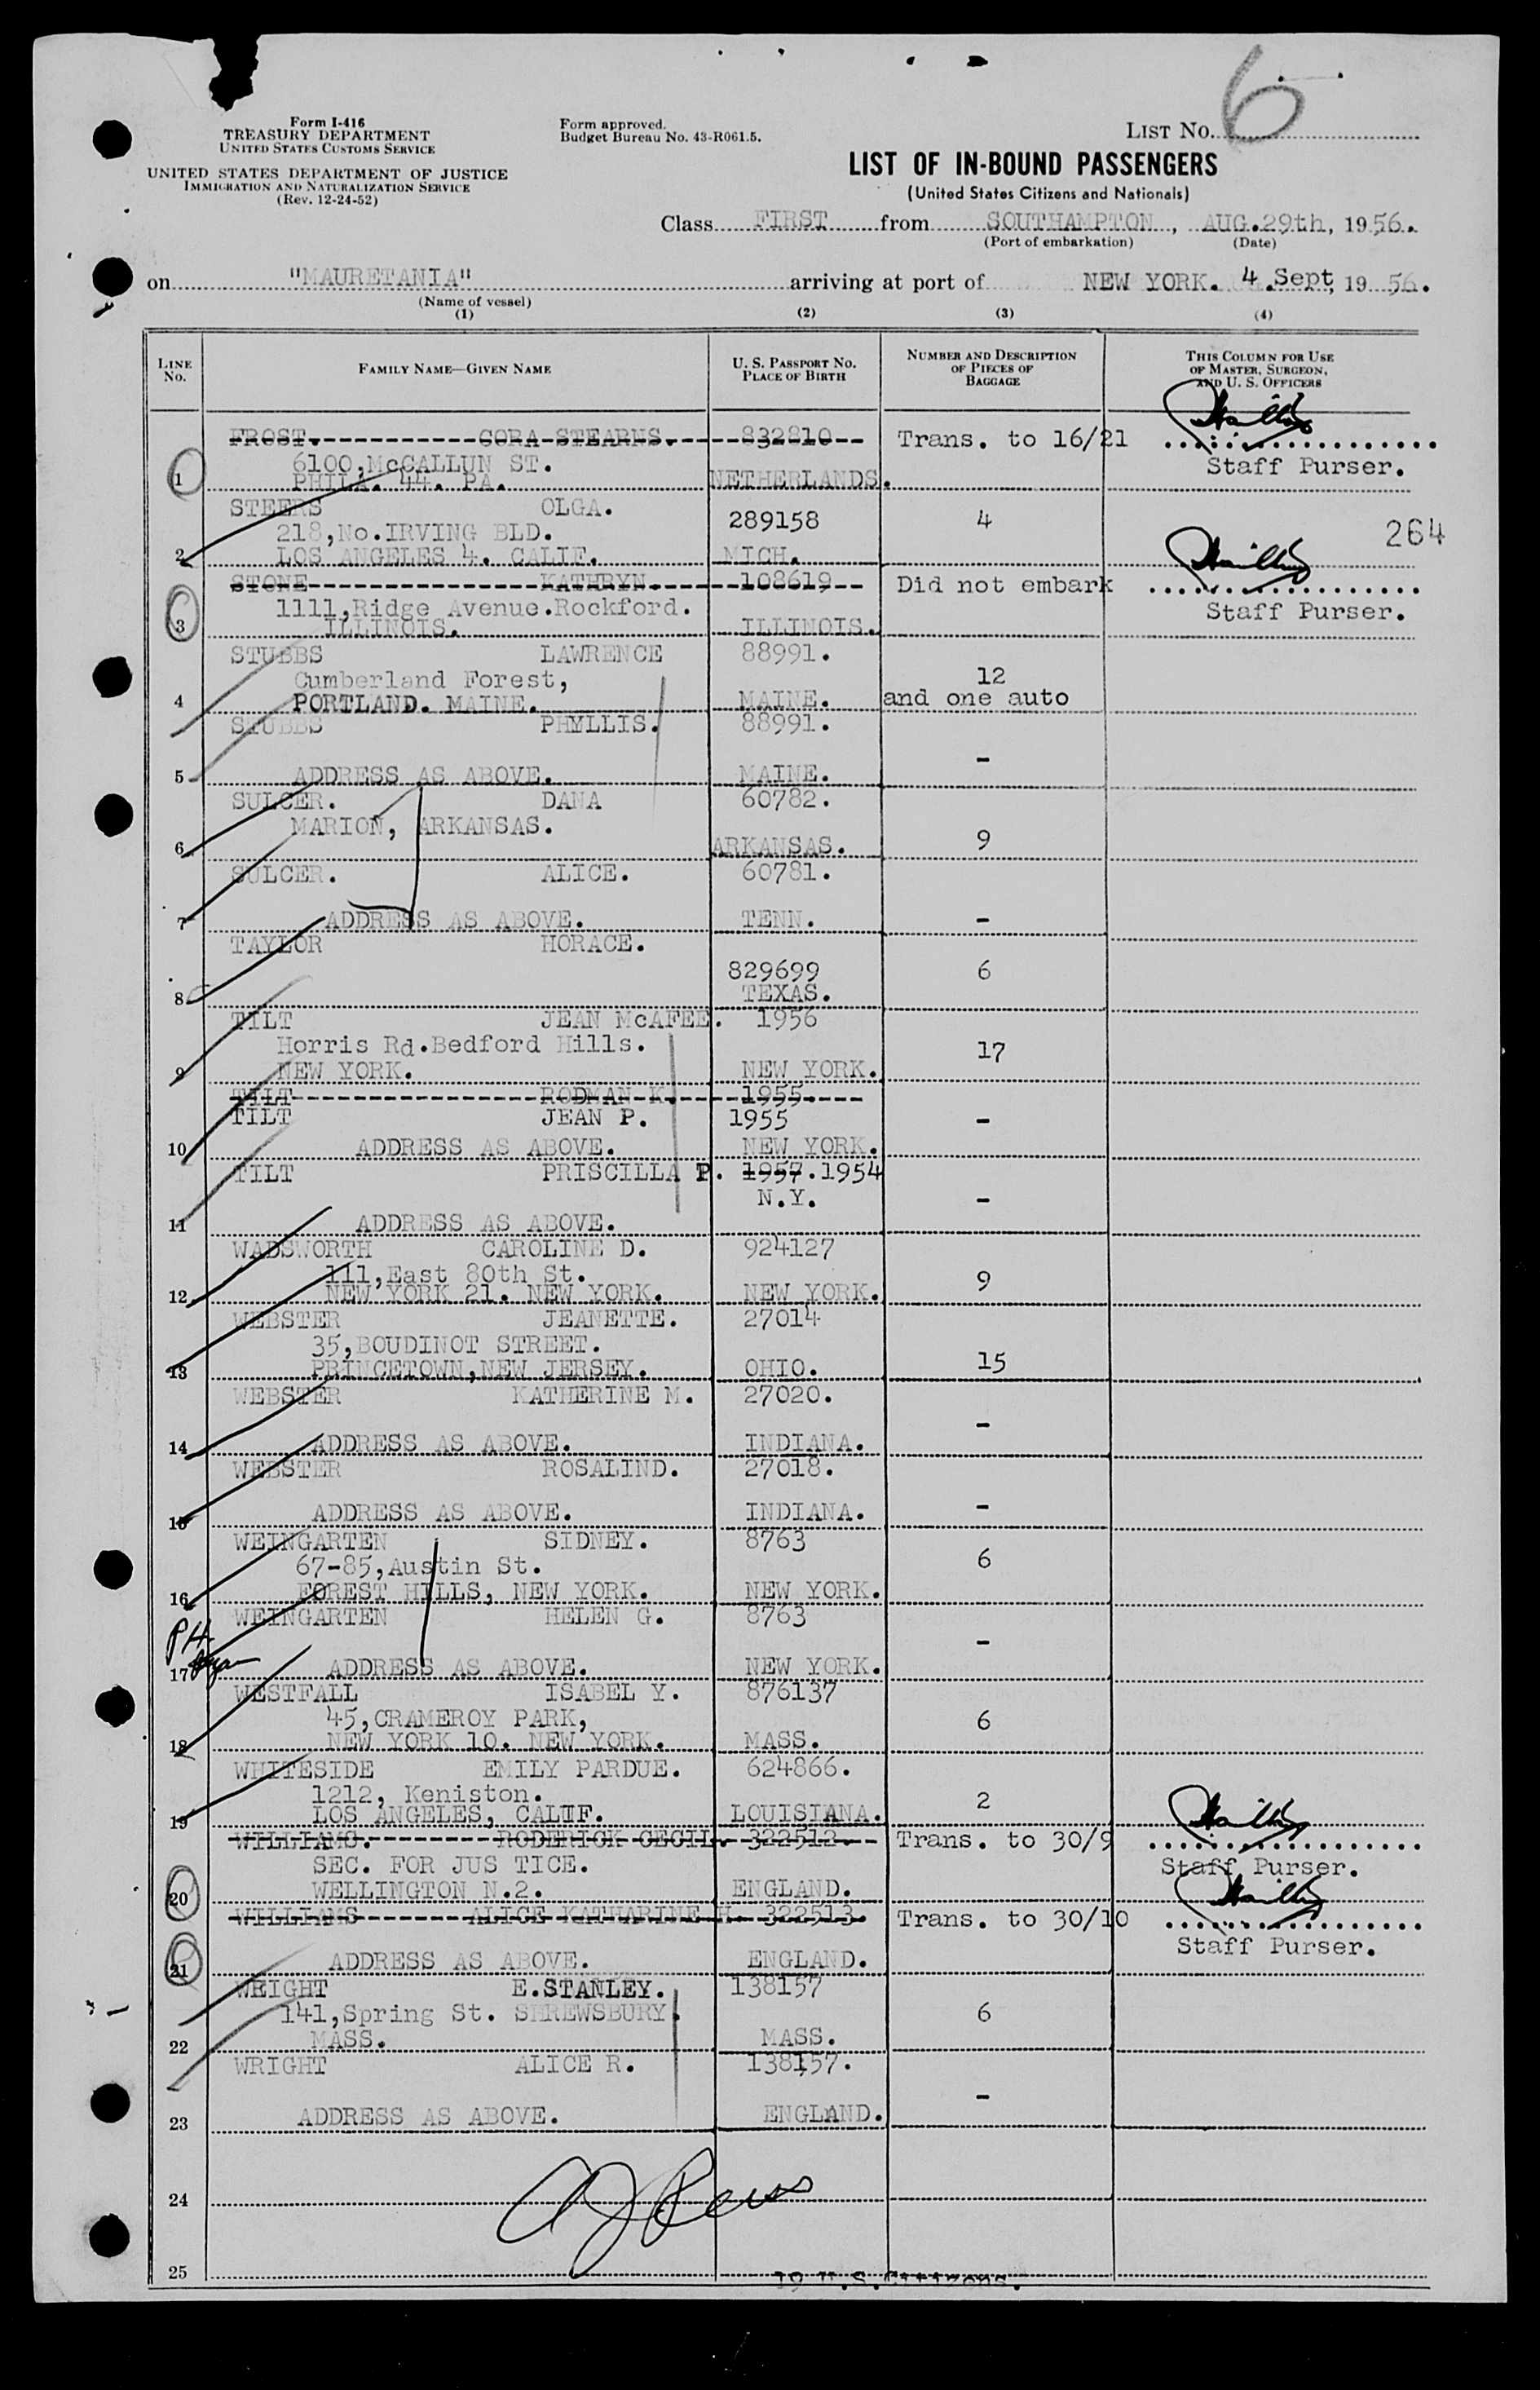 6
Form I-416
TREASURY DEPARTMENT
UNITED STATES CUSTOMS SERVICE
UNITED STATES DEPARTMENT OF JUSTICE
IMMIGRATION AND NATURALIZATION SERVICE
(Rev. 12-24-52)
Form approved.
Budget Bureau No. 43-R061.5.
LIST NO.
LIST OF IN-BOUND PASSENGERS
(United States Citizens and Nationals)
Class FIRST from SOUTHAMPTON, AUG.29th, 1956.
(Port of embarkation) (Date)
on "MAURETANIA" arriving at port of NEW YORK. 4 Sept, 1956.
(Name of vessel)
(1) (2) (3) (4)
LINE No.
FAMILY NAME—GIVEN NAME
U. S. PASSPORT NO.
PLACE OF BIRTH
NUMBER AND DESCRIPTION
OF PIECES OF
BAGGAGE
THIS COLUMN FOR USE
OF MASTER, SURGEON,
AND U. S. OFFICERS
FROST. CORA STEARNS. 832810 Trans. to 16/21
6100,McCALLUN ST. Staff Purser.
1 PHILA. 44. PA. NETHERLANDS.
STEERS OLGA. 289158 4 264
218,No.IRVING BLD.
2 LOS ANGELES 4. CALIF. MICH.
STONE KATHRYN. 108619 Did not embark
1111,Ridge Avenue.Rockford. Staff Purser.
3 ILLINOIS. ILLINOIS.
STUBBS LAWRENCE 88991.
Cumberland Forest, 12
4 PORTLAND. MAINE. MAINE. and one auto
STUBBS PHYLLIS. 88991.
-
5 ADDRESS AS ABOVE. MAINE.
SULCER. DANA 60782.
MARION, ARKANSAS. 9
6 ARKANSAS.
SULCER. ALICE. 60781.
7 ADDRESS AS ABOVE. TENN. -
TAYLOR HORACE.
829699 6
8 TEXAS.
TILT JEAN McAFEE. 1956
Horris Rd.Bedford Hills. 17
9 NEW YORK. NEW YORK.
TILT RODMAN K. 1955.
TILT JEAN P. 1955 -
10 ADDRESS AS ABOVE. NEW YORK.
TILT PRISCILLA P. 1957.1954
N.Y. -
11 ADDRESS AS ABOVE.
WADSWORTH CAROLINE D. 924127
111,East 80th St. 9
12 NEW YORK 21. NEW YORK. NEW YORK.
WEBSTER JEANETTE. 27014
35,BOUDINOT STREET.
13 PRINCETOWN,NEW JERSEY. OHIO. 15
WEBSTER KATHERINE M. 27020.
-
14 ADDRESS AS ABOVE. INDIANA.
WEBSTER ROSALIND. 27018.
15 ADDRESS AS ABOVE. INDIANA. -
WEINGARTEN SIDNEY. 8763
67-85,Austin St. 6
16 FOREST HILLS, NEW YORK. NEW YORK.
WEINGARTEN HELEN G. 8763
-
17 ADDRESS AS ABOVE. NEW YORK.
WESTFALL ISABEL Y. 876137
45,CRAMEROY PARK, 6
18 NEW YORK 10. NEW YORK. MASS.
WHITESIDE EMILY PARDUE. 624866.
1212, Keniston. 2
19 LOS ANGELES, CALIF. LOUISIANA.
WILLIAMS. RODERICK CECIL. 322512. Trans. to 30/9
SEC. FOR JUS TICE. Staff Purser.
20 WELLINGTON N.2. ENGLAND.
WILLIAMS ALICE KATHARINE H. 322513. Trans. to 30/10
Staff Purser.
21 ADDRESS AS ABOVE. ENGLAND.
WRIGHT E.STANLEY. 138157
141,Spring St. SHREWSBURY. 6
22 MASS. MASS.
WRIGHT ALICE R. 138157.
-
23 ADDRESS AS ABOVE. ENGLAND.
24
25
19 U.S.Citizens.